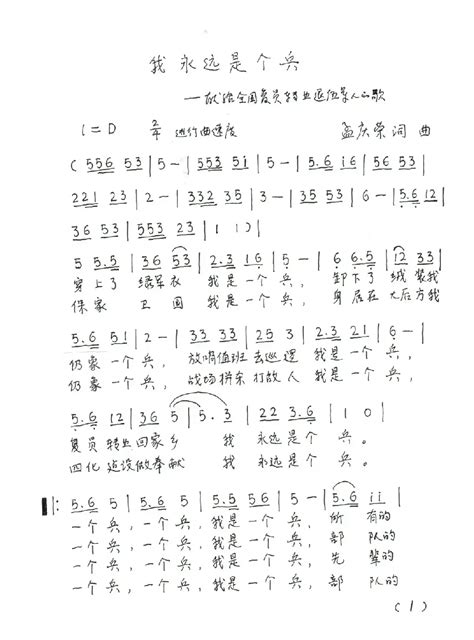 我永远是个兵
——献给全国复员转业退伍军人的歌
1=D 2/4 进行曲速度 孟庆荣 词 曲
( 556 53 | 5 - | 553 5i | 5 - | 5.6 i6 | 56 53 |
221 23 | 2 - | 332 35 | 3 - | 36 53 | 6 - | 5.6 12 |
36 53 | 553 23 | 1 1 ) |
5 5.5 | 36 53 | 2.3 16 | 5 - | 6 6.5 | 12 33 |
穿上了 绿军衣 我是一个兵, 卸下了绒装我
保家卫国 我是一个兵, 身居在大后方我
5.6 51 | 2 - | 33 33 | 25 3 | 2.3 21 | 6 - |
仍象一个兵, 放哨值班去巡逻 我是一个兵,
仍象一个兵, 战场拼杀打敌人 我是一个兵,
5.6 12 | 36 5 | 5. 3 | 22 3.6 | 1 0 |
复员转业回家乡 我永远是个兵。
四化建设做奉献 我永远是个兵。
‖: 5.6 5 | 5.6 5 | 5.5 56 | 5 - | 5.6 ii |
一个兵,一个兵,我是一个兵, 所有的
一个兵,一个兵,我是一个兵, 部队的
一个兵,一个兵,我是一个兵, 先辈的
一个兵,一个兵,我是一个兵, 部队的
(1)